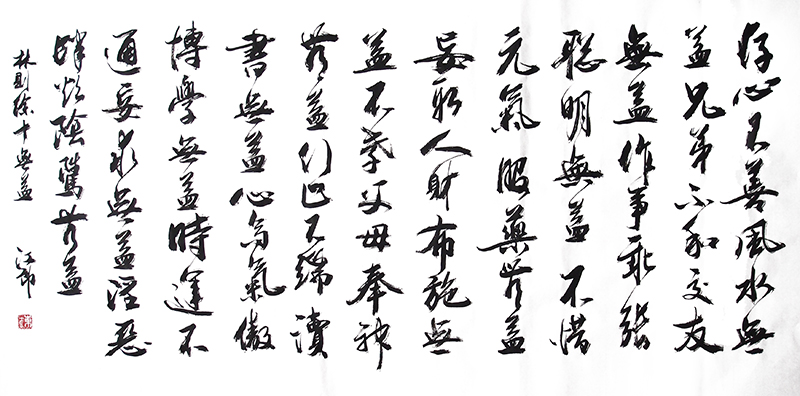 存心不善風水無
益兄弟不和交友
無益作事乖張
聪明無益不惜
元氣服藥无益
妄取人財布施無
益不孝父母奉神
无益行止不端讀
書無益心高氣傲
博學無益時運不
通妄求無益淫惡
肆欲陰騭无益
林則徐十無益